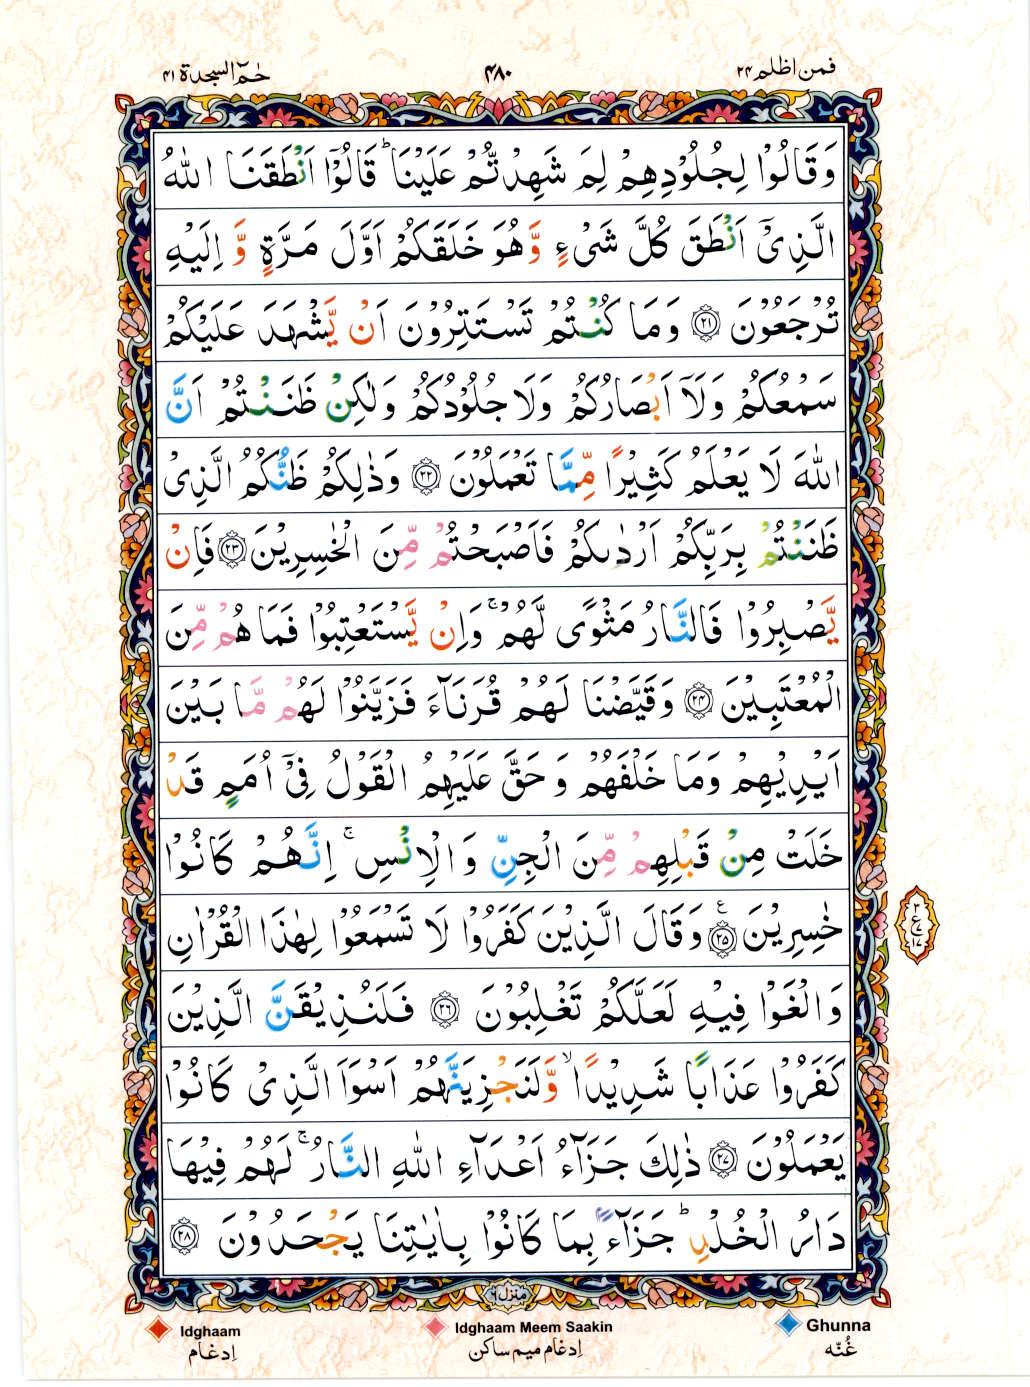 فمن اظلم ۲۴
۴۸۰
حٰمٓ السجدة ۴۱
وَ قَالُوْا لِجُلُوْدِهِمْ لِمَ شَهِدْتُّمْ عَلَيْنَا ؕ قَالُوْۤا اَنْطَقَنَا اللّٰهُ
الَّذِيْۤ اَنْطَقَ كُلَّ شَيْءٍ وَّ هُوَ خَلَقَكُمْ اَوَّلَ مَرَّةٍ وَّ اِلَيْهِ
تُرْجَعُوْنَ ﴿۲۱﴾ وَ مَا كُنْتُمْ تَسْتَتِرُوْنَ اَنْ يَّشْهَدَ عَلَيْكُمْ
سَمْعُكُمْ وَ لَاۤ اَبْصَارُكُمْ وَ لَا جُلُوْدُكُمْ وَ لٰكِنْ ظَنَنْتُمْ اَنَّ
اللّٰهَ لَا يَعْلَمُ كَثِيْرًا مِّمَّا تَعْمَلُوْنَ ﴿۲۲﴾ وَ ذٰلِكُمْ ظَنُّكُمُ الَّذِيْ
ظَنَنْتُمْ بِرَبِّكُمْ اَرْدٰىكُمْ فَاَصْبَحْتُمْ مِّنَ الْخٰسِرِيْنَ ﴿۲۳﴾ فَاِنْ
يَّصْبِرُوْا فَالنَّارُ مَثْوًى لَّهُمْ ۚ وَ اِنْ يَّسْتَعْتِبُوْا فَمَا هُمْ مِّنَ
الْمُعْتَبِيْنَ ﴿۲۴﴾ وَ قَيَّضْنَا لَهُمْ قُرَنَآءَ فَزَيَّنُوْا لَهُمْ مَّا بَيْنَ
اَيْدِيْهِمْ وَ مَا خَلْفَهُمْ وَ حَقَّ عَلَيْهِمُ الْقَوْلُ فِيْۤ اُمَمٍ قَدْ
خَلَتْ مِنْ قَبْلِهِمْ مِّنَ الْجِنِّ وَ الْاِنْسِ ۚ اِنَّهُمْ كَانُوْا
خٰسِرِيْنَ ﴿۲۵﴾ ع وَ قَالَ الَّذِيْنَ كَفَرُوْا لَا تَسْمَعُوْا لِهٰذَا الْقُرْاٰنِ
وَ الْغَوْا فِيْهِ لَعَلَّكُمْ تَغْلِبُوْنَ ﴿۲۶﴾ فَلَنُذِيْقَنَّ الَّذِيْنَ
كَفَرُوْا عَذَابًا شَدِيْدًا ۙ وَّ لَنَجْزِيَنَّهُمْ اَسْوَاَ الَّذِيْ كَانُوْا
يَعْمَلُوْنَ ﴿۲۷﴾ ذٰلِكَ جَزَآءُ اَعْدَآءِ اللّٰهِ النَّارُ ۚ لَهُمْ فِيْهَا
دَارُ الْخُلْدِ ؕ جَزَآءًۢ بِمَا كَانُوْا بِاٰيٰتِنَا يَجْحَدُوْنَ ﴿۲۸﴾
۳
ع
۷
۱۷
منزل ۶
Ghunna
غُنّه
Idghaam Meem Saakin
اِدغام میم ساکن
Idghaam
اِدغام